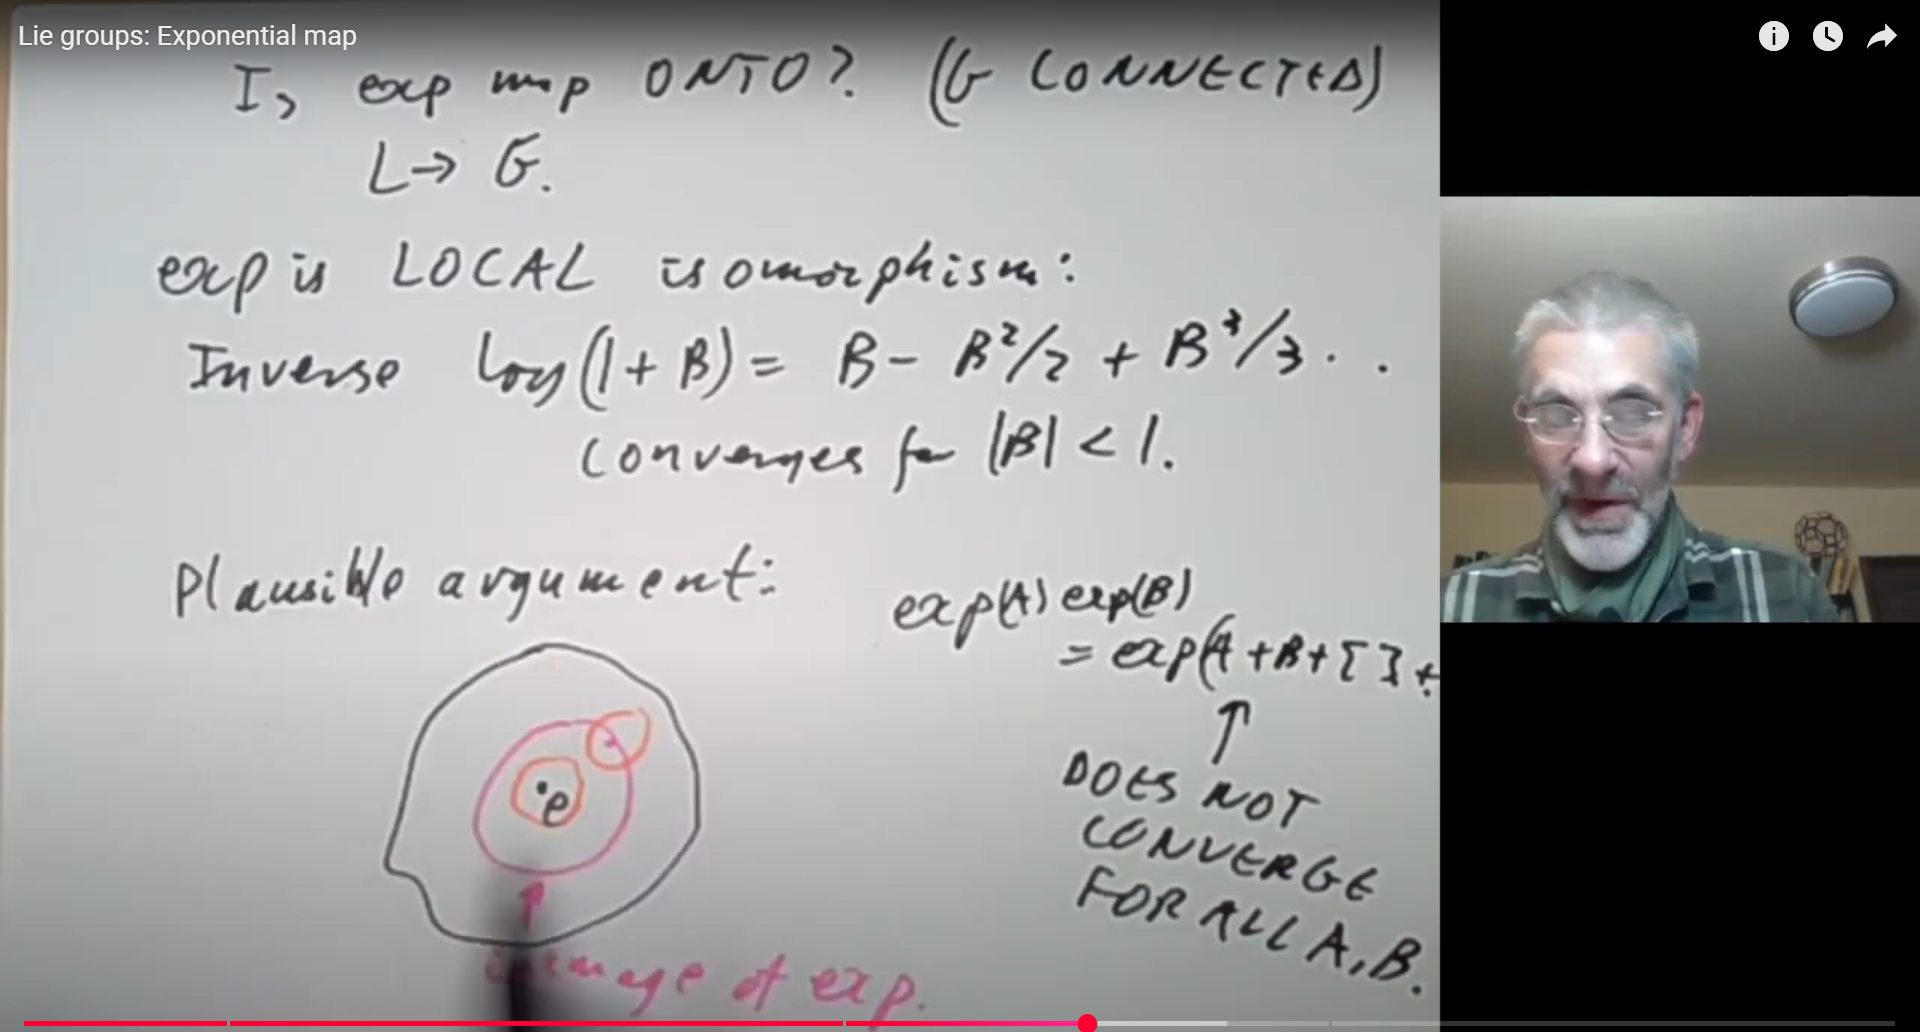 Lie groups: Exponential map
Is exp map ONTO? (G CONNECTED)
L→ G.
exp is LOCAL isomorphism:
Inverse log(1+B) = B - B²/2 + B³/3 . .
converges for |B| < 1.
Plausible argument:
exp(A) exp(B)
= exp(A + B + [ ] + .
↑
DOES NOT
CONVERGE
FOR ALL A, B.
e
↑
image of exp.